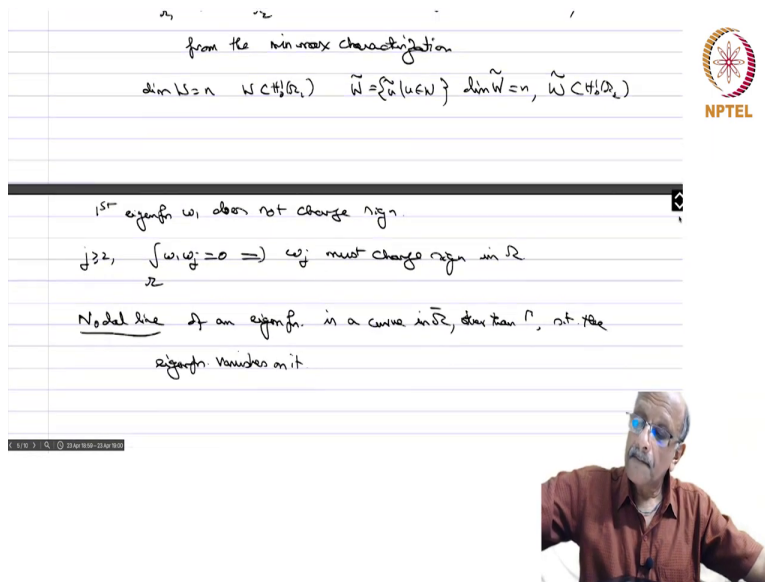 Ω₁ Ω₂
from the min max characterization
dim W = n W ⊂ H₀¹(Ω₁) W̃ = {ũ | u ∈ W} dim W̃ = n, W̃ ⊂ H₀¹(Ω₂)
NPTEL
1ST eigenfn w₁ does not change sign.
j ≥ 2, ∫_Ω w₁ wⱼ = 0 ⇒ wⱼ must change sign in Ω
Nodal line of an eigenfn. is a curve in Ω̄, other than Γ, s.t. the
eigenfn. vanishes on it
5/10 23 Apr 18:59-23 Apr 19:00